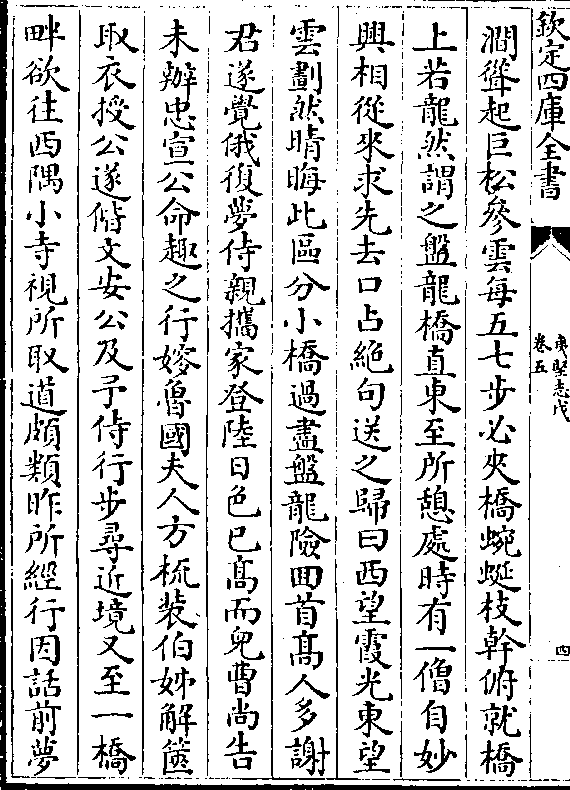 欽定四庫全書
夷堅志戊
卷五
四
澗聳起巨松參雲每五七步必夾橋蜿蜒枝幹俯就橋
上若龍然謂之盤龍橋直東至所憩處時有一僧自妙
興相從來求先去口占絶句送之歸曰西望霞光東望
雲劃然晴晦此區分小橋過盡盤龍險囬首髙人多謝
君遂覺俄復夢侍親攜家登陸日色已髙而兒曹尚告
未辦忠宣公命趣之行嫁魯國夫人方梳裝伯姊解篋
取衣授公遂偕文安公及予侍行步尋近境又至一橋
畔欲往西隅小寺視所取道頗類昨所經行因話前夢